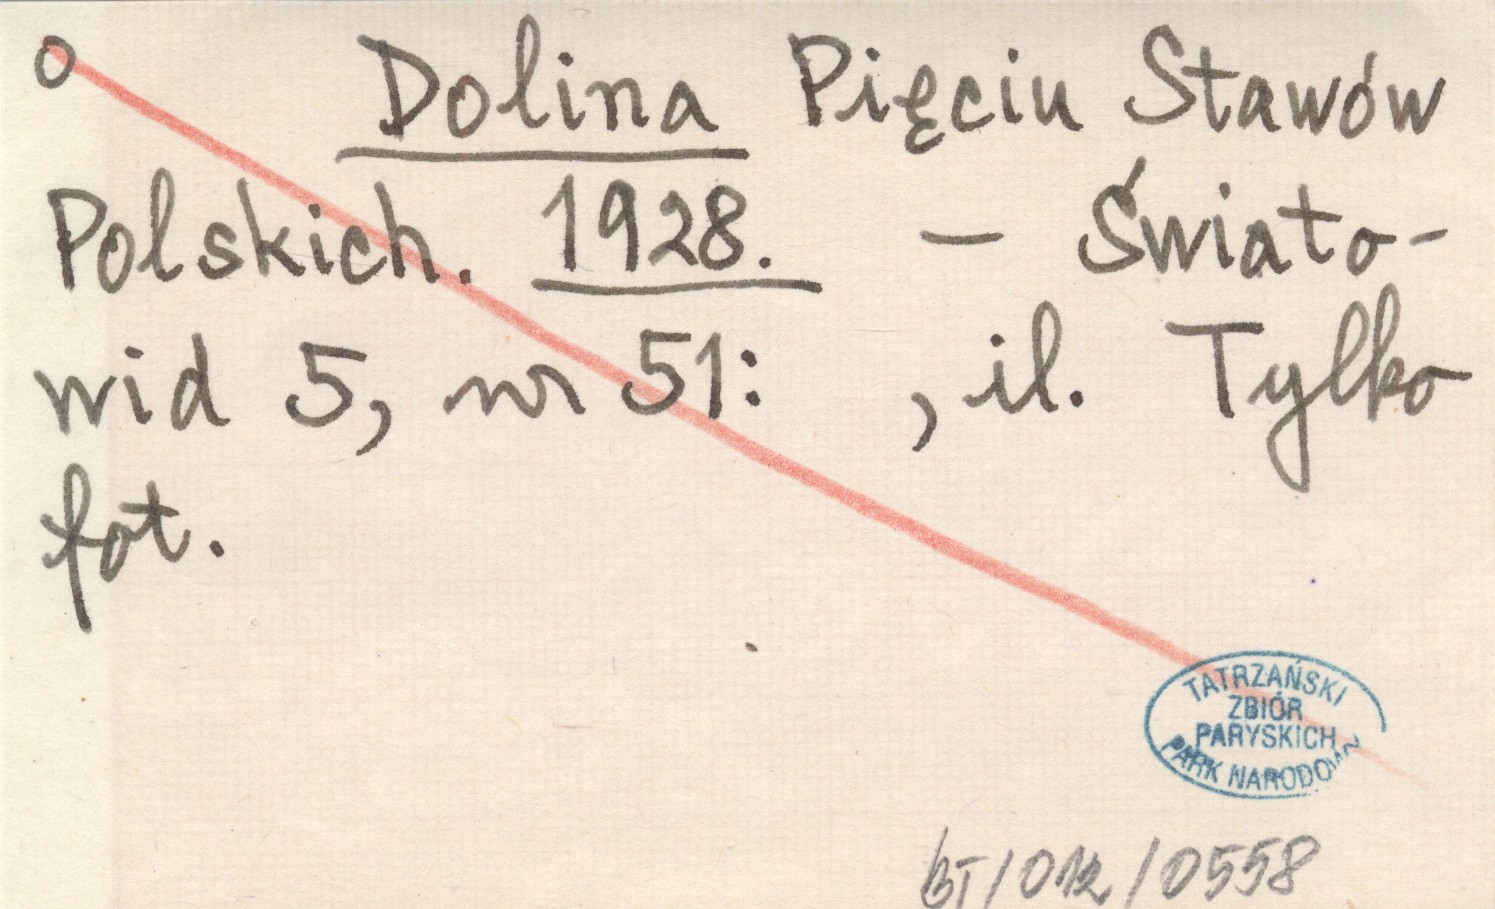 o Dolina Pięciu Stawów
Polskich. 1928. – Świato-
wid 5, nr 51: , il. Tylko
fot.
TATRZAŃSKI
ZBIÓR
PARYSKICH
PARK NARODOWY
BT/012/0558